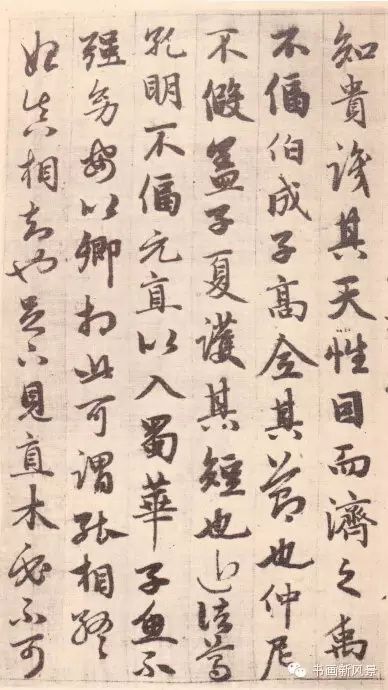 知貴識其天性因而濟之禹
不偪伯成子高全其節也仲尼
不假蓋子夏護其短也近諸葛
孔明不偪元直以入蜀華子魚不
强幼安以卿相此可謂能相終
始真相知也足下見直木必不可
书画新风景